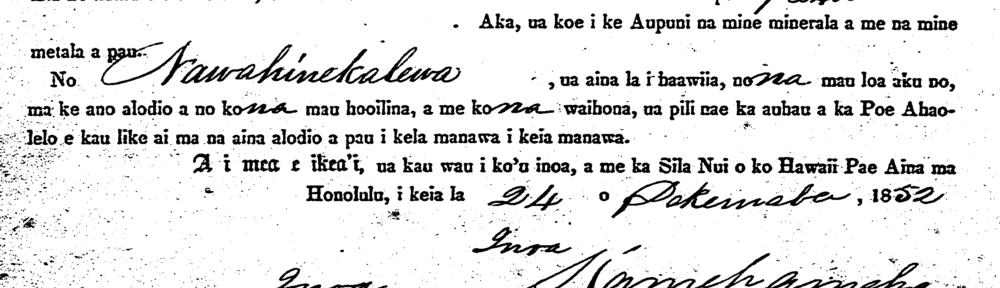 Aka, ua koe i ke Aupuni na mine minerala a me na mine
metala a pau.
No Nawahinekalewa, ua aina la i haawiia, no na mau loa aku no,
ma ke ano alodio a no kona mau hooilina, a me kona waihona, ua pili nae ka auhau a ka Poe Ahao-
lelo e kau like ai ma na aina alodio a pau i kela manawa i keia manawa.
A i mea e ikea'i, ua kau wau i ko'u inoa, a me ka Sila Nui o ko Hawaii Pae Aina ma
Honolulu, i keia la 24 o Dekemaba, 1852
Inoa
Inoa Kamehameha